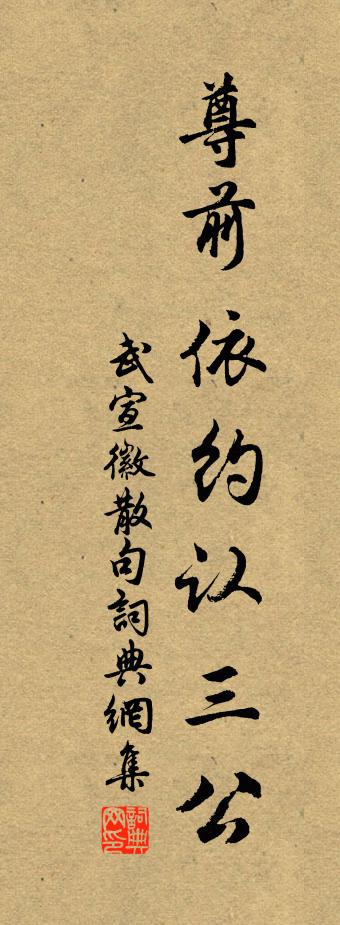 尊前依约认三公
武宣徽散句詞典網集
詞典网印